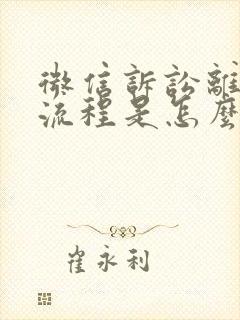 微信訴訟離
流程是怎麼
崔永利